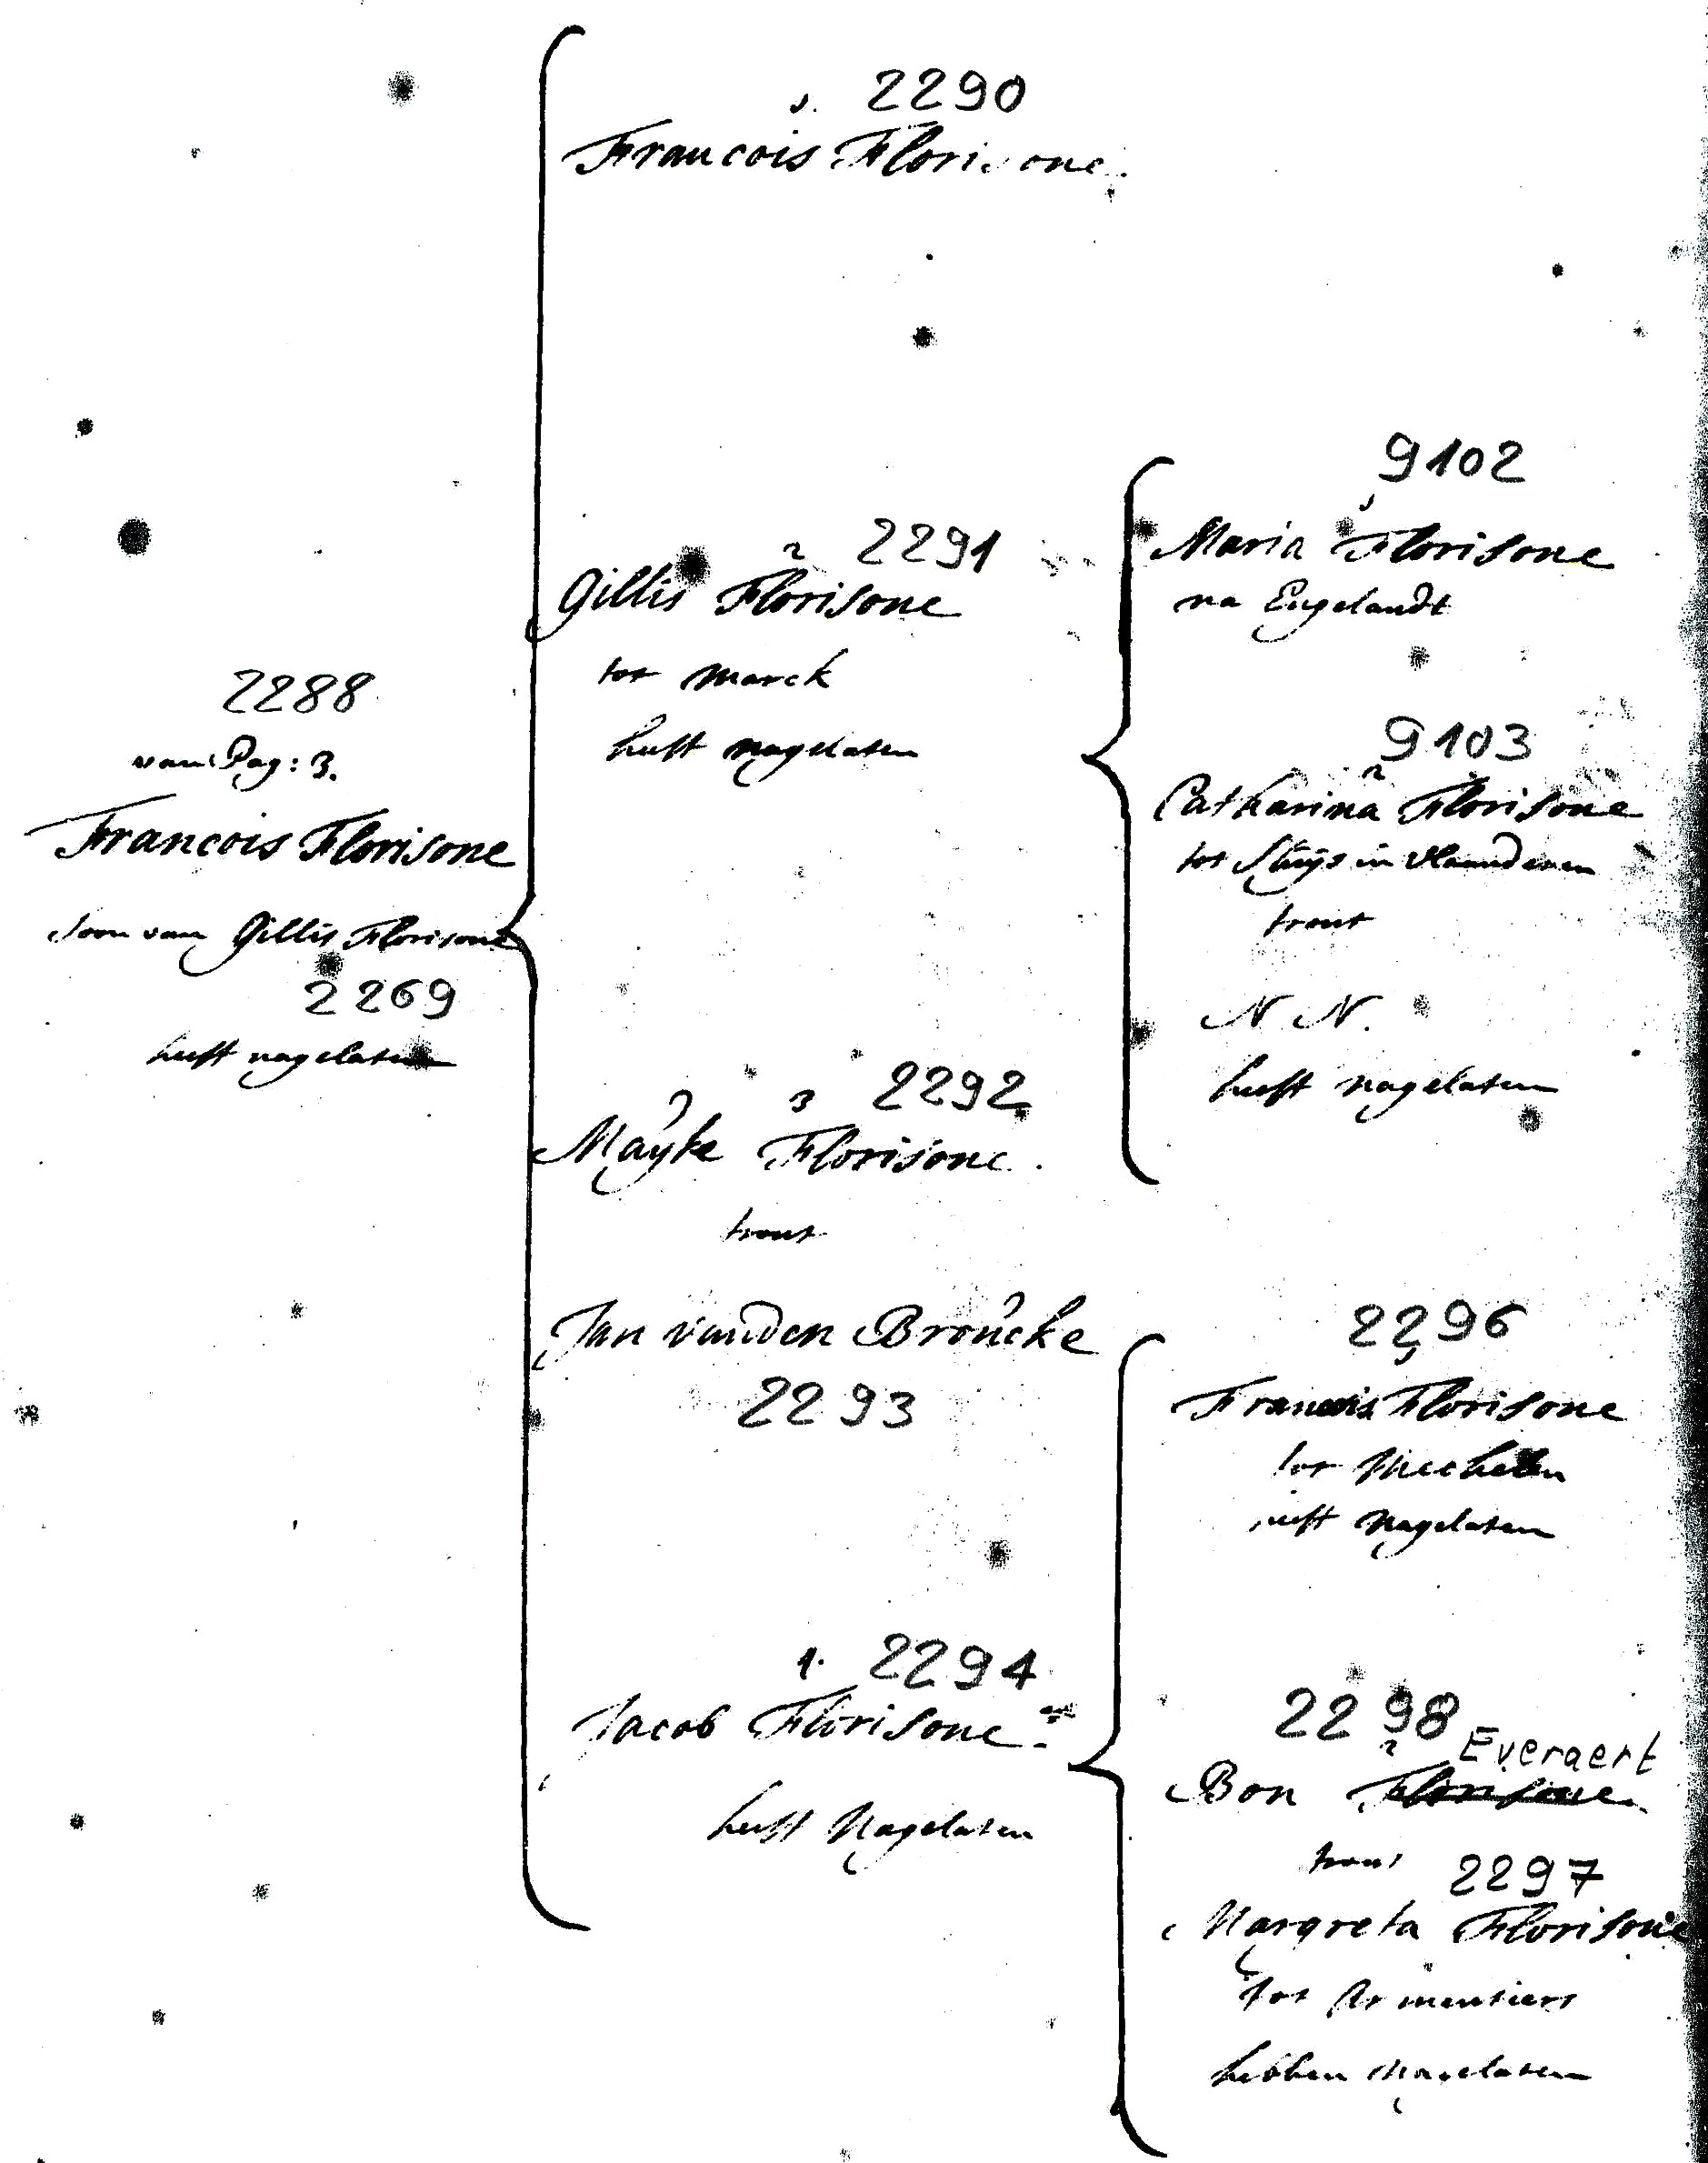 2288
van Pag: 3.
Francois Florisone
soon van Gillis Florisone
2269
heeft nagelaten
1. 2290
Francois Florisone.
2 2291
Gillis Florisone
tot Marck
heeft nagelaten
3 2292
Mayke Florisone.
trout
Jan vanden Broucke
2293
4. 2294
Jacob Florisone
heeft Nagelaten
9102
1
Maria Florisone
na Engelandt
9103
2
Catharina Florisone
tot Sluys in Vlaenderen
trout
N N.
heeft nagelaten
2296
1
Francois Florisone
tot Mechelen
heeft Nagelaten
2298
2 Everaert
Bon Florisone
trout 2297
Margreta Florisone
tot Armentiers
hebben Nagelaten